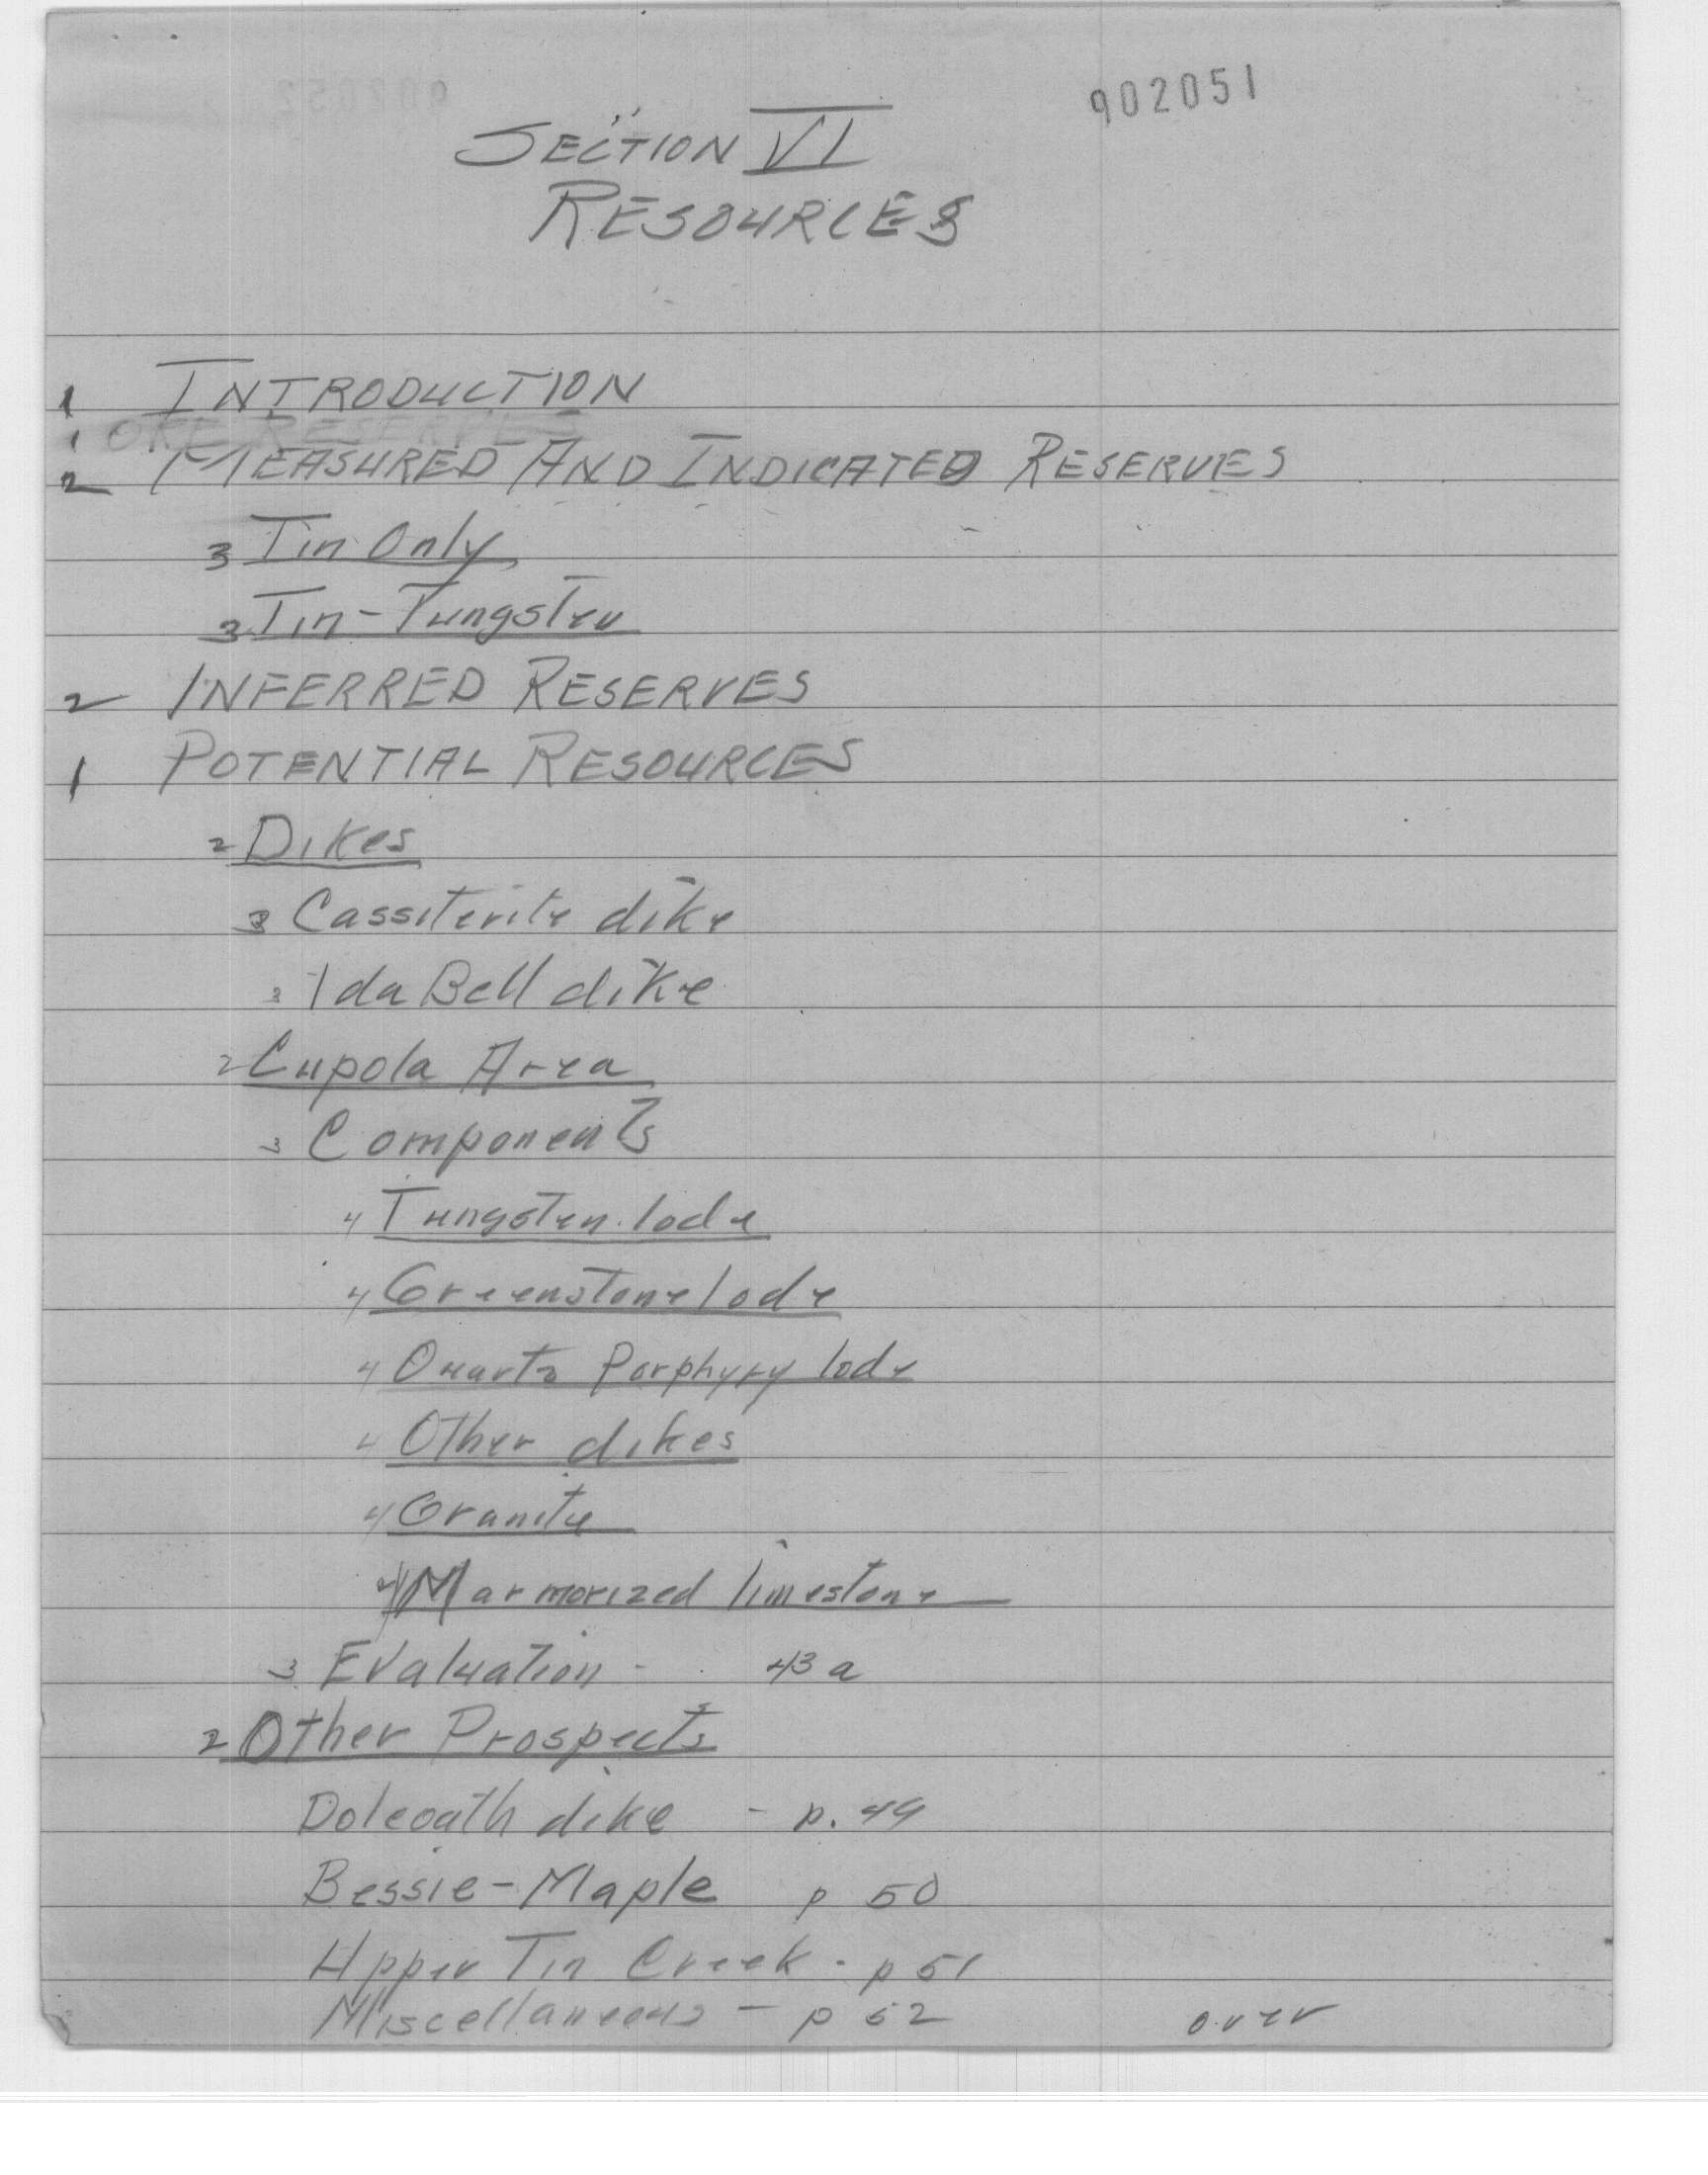 902051
SECTION VI
RESOURCES
1 INTRODUCTION
1 ORE RESERVES
2 MEASURED AND INDICATED RESERVES
3 Tin Only
3 Tin-Tungsten
2 INFERRED RESERVES
1 POTENTIAL RESOURCES
2 Dikes
3 Cassiterite dike
3 Ida Bell dike
2 Cupola Area
3 Components
4 Tungsten lode
4 Greenstone lode
4 Quartz Porphyry lode
4 Other dikes
4 Granite
4 Marmorized limestone
3 Evaluation - 43 a
2 Other Prospects
Dolcoath dike - p. 49
Bessie-Maple p 50
Upper Tin Creek - p 51
Miscellaneous - p 52 over